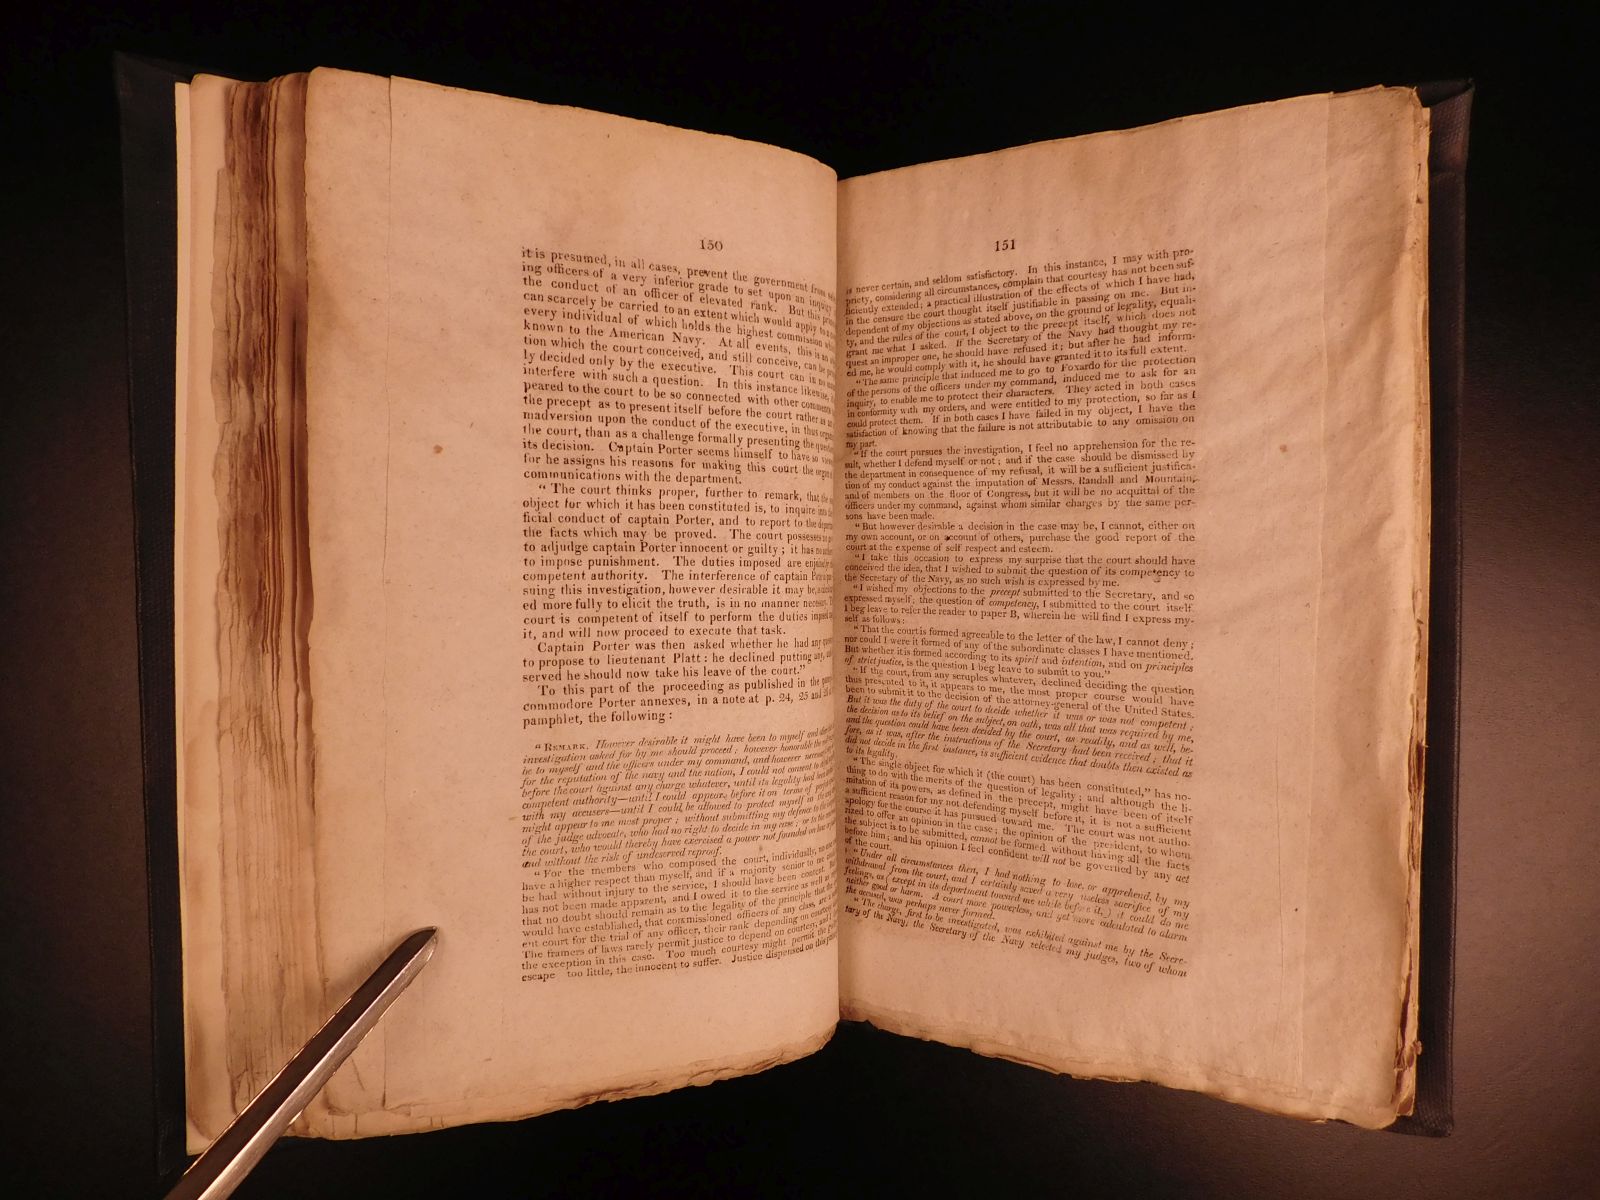 150
it is presumed, in all cases, prevent the government from
ing officers of a very inferior grade to set upon an inquiry
the conduct of an officer of elevated rank. But this
can scarcely be carried to an extent which would apply to
every individual of which holds the highest commission
known to the American Navy. At all events, this is
tion which the court conceived, and still conceive, can be
ly decided only by the executive. This court can in no
interfere with such a question. In this instance likewise,
peared to the court to be so connected with other comments
the precept as to present itself before the court rather as an
madversion upon the conduct of the executive, in thus
the court, than as a challenge formally presenting the question
its decision. Captain Porter seems himself to have so
for he assigns his reasons for making this court the organ
communications with the department.
" The court thinks proper, further to remark, that the
object for which it has been constituted is, to inquire into the
ficial conduct of captain Porter, and to report to the
the facts which may be proved. The court possesses no
to adjudge captain Porter innocent or guilty ; it has
to impose punishment. The duties imposed are enjoined
competent authority. The interference of captain Porter
suing this investigation, however desirable it may be,
ed more fully to elicit the truth, is in no manner necessary.
court is competent of itself to perform the duties imposed
it, and will now proceed to execute that task.
Captain Porter was then asked whether he had any
to propose to lieutenant Platt : he declined putting any,
served he should now take his leave of the court."
To this part of the proceeding as published in the
commodore Porter annexes, in a note at p. 24, 25 and
pamphlet, the following :
" REMARK. However desirable it might have been to myself and
investigation asked for by me should proceed ; however honorable the
be to myself and the officers under my command, and however
for the reputation of the navy and the nation, I could not consent to
before the court against any charge whatever, until its legality had been
competent authority—until I could appear before it on terms of
with my accusers—until I could be allowed to protect myself in the
might appear to me most proper ; without submitting my defence to the
of the judge advocate, who had no right to decide in my case ; or to the
the court, who would thereby have exercised a power not founded on law
and without the risk of undeserved reproof.
" For the members who composed the court, individually,
have a higher respect than myself, and if a majority senior to me
be had without injury to the service, I should have been content. But
has not been made apparent, and I owed it to the service as well as
that no doubt should remain as to the legality of the principle that the
would have established, that commissioned officers of any class, are
ent court for the trial of any officer, their rank depending on courtesy,
The framers of laws rarely permit justice to depend on courtesy, and
the exception in this case. Too much courtesy might permit the guilty
escape too little, the innocent to suffer. Justice dispensed on this
151
is never certain, and seldom satisfactory. In this instance, I may with pro-
priety, considering all circumstances, complain that courtesy has not been suf-
ficiently extended; a practical illustration of the effects of which I have had,
in the censure the court thought itself justifiable in passing on me. But in-
dependent of my objections as stated above, on the ground of legality, equali-
ty, and the rules of the court, I object to the precept itself, which does not
grant me what I asked. If the Secretary of the Navy had thought my re-
quest an improper one, he should have refused it; but after he had inform-
ed me, he would comply with it, he should have granted it to its full extent.
"The same principle that induced me to go to Foxardo for the protection
of the persons of the officers under my command, induced me to ask for an
inquiry, to enable me to protect their characters. They acted in both cases
in conformity with my orders, and were entitled to my protection, so far as I
could protect them. If in both cases I have failed in my object, I have the
satisfaction of knowing that the failure is not attributable to any omission on
my part.
"If the court pursues the investigation, I feel no apprehension for the re-
sult, whether I defend myself or not ; and if the case should be dismissed by
the department in consequence of my refusal, it will be a sufficient justifica-
tion of my conduct against the imputation of Messrs. Randall and Mountain,
and of members on the floor of Congress, but it will be no acquittal of the
officers under my command, against whom similar charges by the same per-
sons have been made.
"But however desirable a decision in the case may be, I cannot, either on
my own account, or on account of others, purchase the good report of the
court at the expense of self respect and esteem.
"I take this occasion to express my surprise that the court should have
conceived the idea, that I wished to submit the question of its competency to
the Secretary of the Navy, as no such wish is expressed by me.
"I wished my objections to the precept submitted to the Secretary, and so
expressed myself; the question of competency, I submitted to the court itself.
I beg leave to refer the reader to paper B, wherein he will find I express my-
self as follows :
"That the court is formed agreeable to the letter of the law, I cannot deny ;
nor could I were it formed of any of the subordinate classes I have mentioned.
But whether it is formed according to its spirit and intention, and on principles
of strict justice, is the question I beg leave to submit to you."
"If the court, from any scruples whatever, declined deciding the question
thus presented to it, it appears to me, the most proper course would have
been to submit it to the decision of the attorney-general of the United States.
But it was the duty of the court to decide whether it was or was not competent ;
the decision as to its belief on the subject, on oath, was all that was required by me,
and the question could have been decided by the court, as readily, and as well, be-
fore, as it was, after the instructions of the Secretary had been received ; that it
did not decide in the first instance, is sufficient evidence that doubts then existed as
to its legality.
"The single object for which it (the court) has been constituted," has no-
thing to do with the merits of the question of legality ; and although the li-
mitation of its powers, as defined in the precept, might have been of itself
a sufficient reason for my not defending myself before it, it is not a sufficient
apology for the course it has pursued toward me. The court was not autho-
rized to offer an opinion in the case; the opinion of the president, to whom
the subject is to be submitted, cannot be formed without having all the facts
before him; and his opinion I feel confident will not be governed by any act
of the court.
"Under all circumstances then, I had nothing to lose, or apprehend, by my
withdrawal from the court, and I certainly saved a very useless sacrifice of my
feelings, as (except in its department toward me while before it,) it could do me
neither good or harm. A court more powerless, and yet more calculated to alarm
the accused, was perhaps never formed.
"The charge, first to be investigated, was exhibited against me by the Secre-
tary of the Navy, the Secretary of the Navy selected my judges, two of whom